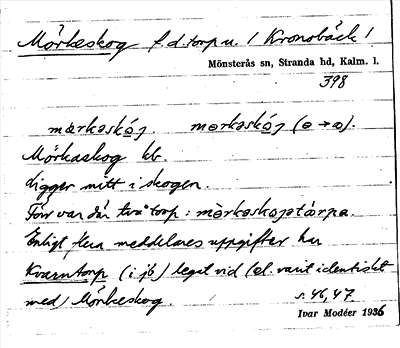 Mörkeskog f.d. torp u. / Kronobäck /
Mönsterås sn, Stranda hd, Kalm. l.
398
mərkəskǫj. mɵrkəskǫj (ɵ→ə).
Mörkaskog kb.
Ligger mitt i skogen.
Förr var där två torp: mɵ̀rkəskojətǻrpa.
Enligt flera meddelares uppgifter har
Kvarntorp (i jb) legat vid (el. varit identiskt
med) Mörkeskog. s. 46, 47.
Ivar Modéer 1936